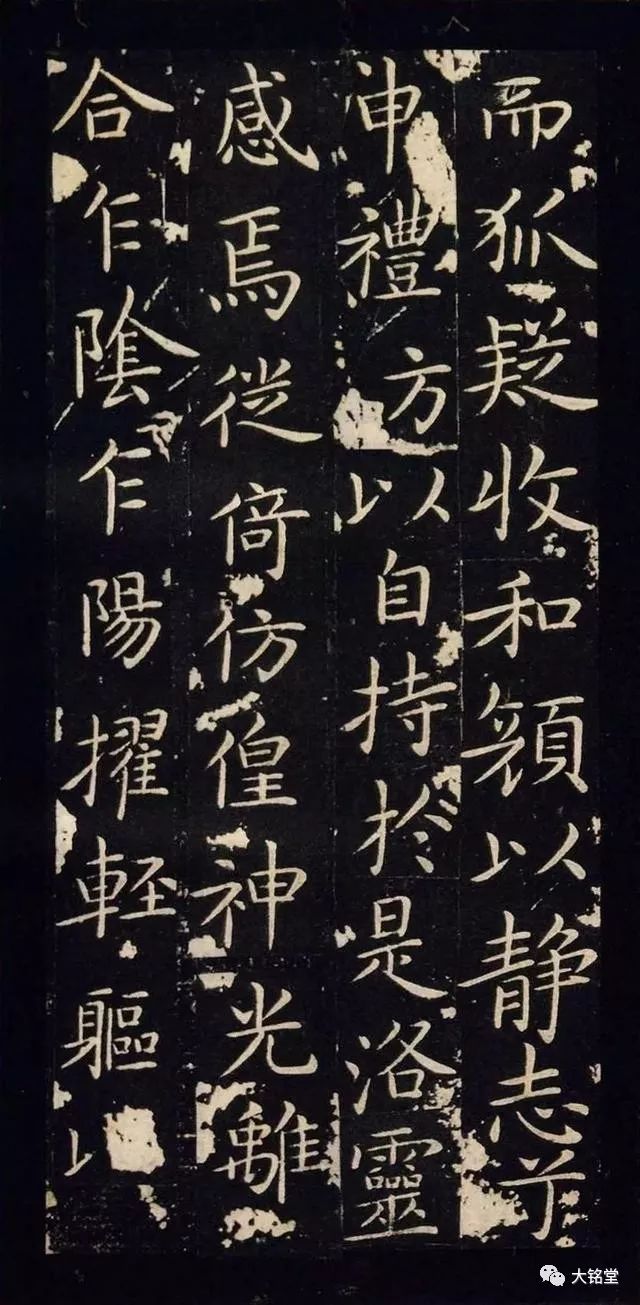 而狐疑收和顔以静志兮
申禮方以自持於是洛靈
感焉徙倚彷徨神光離
合乍陰乍陽擢輕軀以
大铭堂